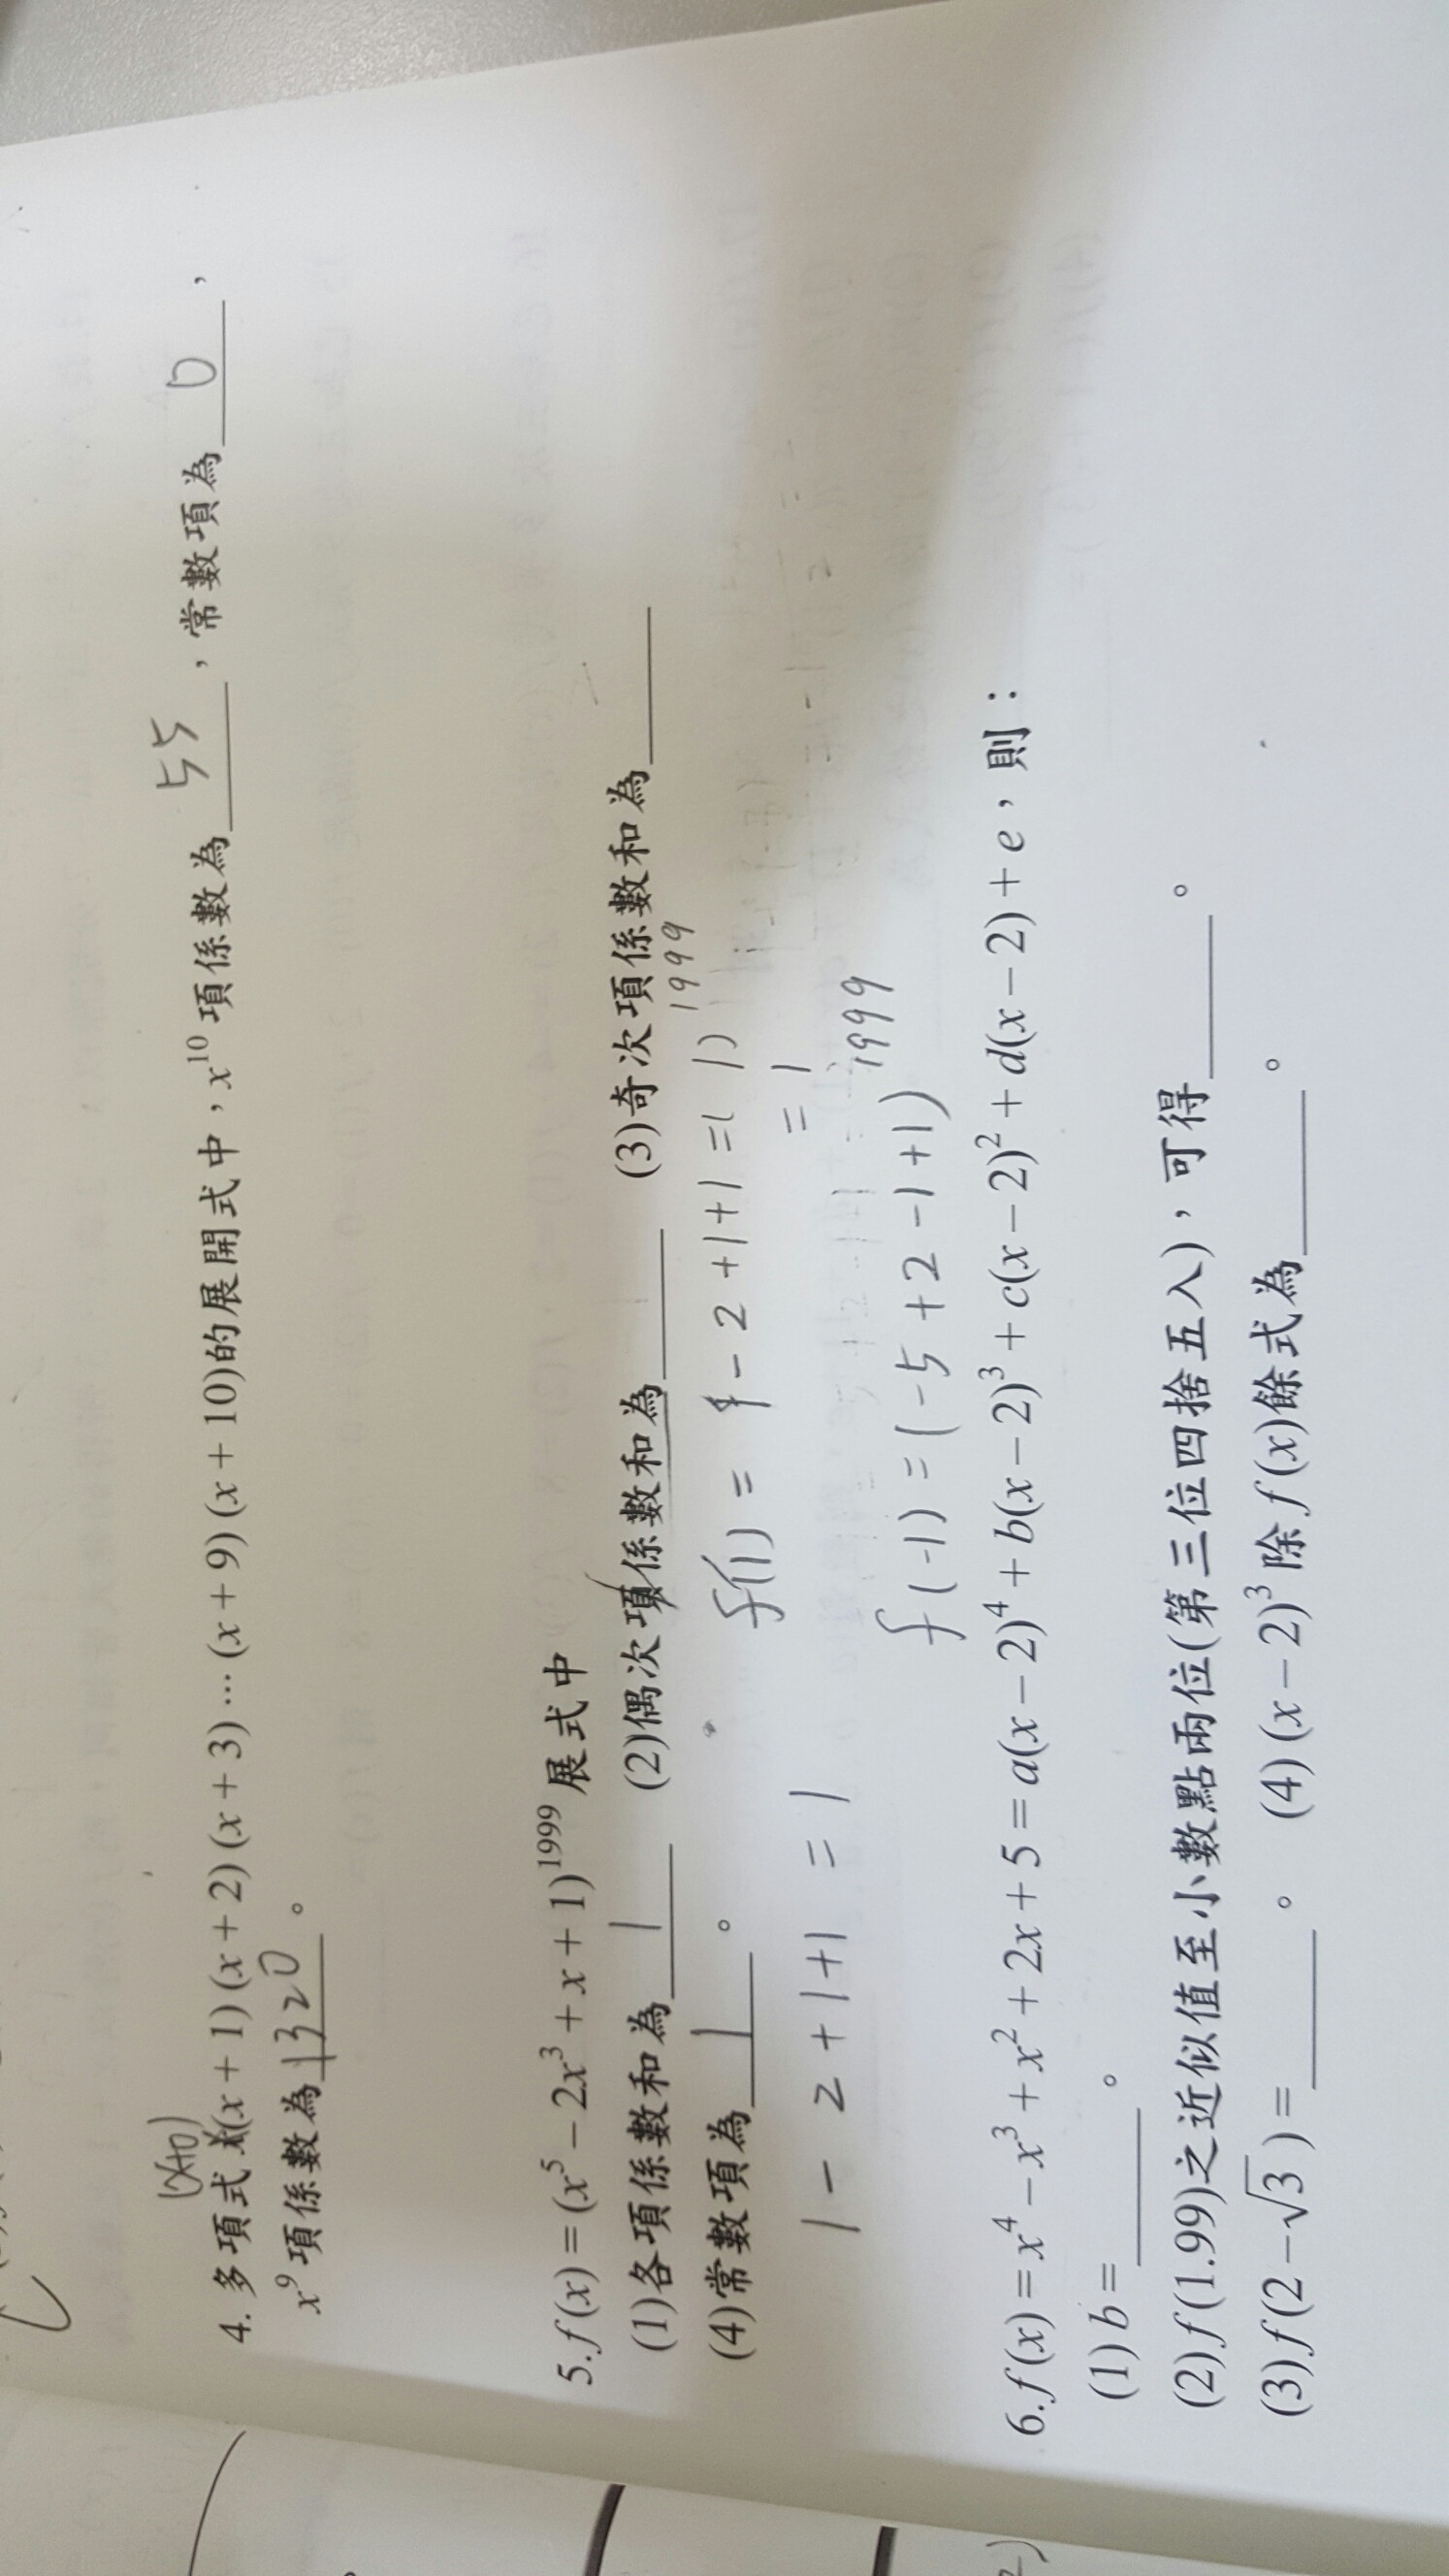 (x+0)
4. 多項式 x(x + 1) (x + 2) (x + 3) ⋯ (x + 9) (x + 10)的展開式中，x¹⁰ 項係數為 55 ，常數項為 0 ，
x⁹ 項係數為 1320 。
5. f(x) = (x⁵ − 2x³ + x + 1)¹⁹⁹⁹ 展式中
(1)各項係數和為 1 (2)偶次項係數和為____ (3)奇次項係數和為____
(4)常數項為 1 。
f(1) = 1 − 2 + 1 + 1 = ( 1 )¹⁹⁹⁹
= 1
1 − 2 + 1 + 1 = 1
f(-1) = (-5 + 2 − 1 + 1)¹⁹⁹⁹
6. f(x) = x⁴ − x³ + x² + 2x + 5 = a(x − 2)⁴ + b(x − 2)³ + c(x − 2)² + d(x − 2) + e，則：
(1) b = ____ 。
(2) f(1.99)之近似值至小數點兩位(第三位四捨五入)，可得____ 。
(3) f(2 − √3 ) = ____ 。 (4) (x − 2)³ 除 f(x)餘式為____ 。